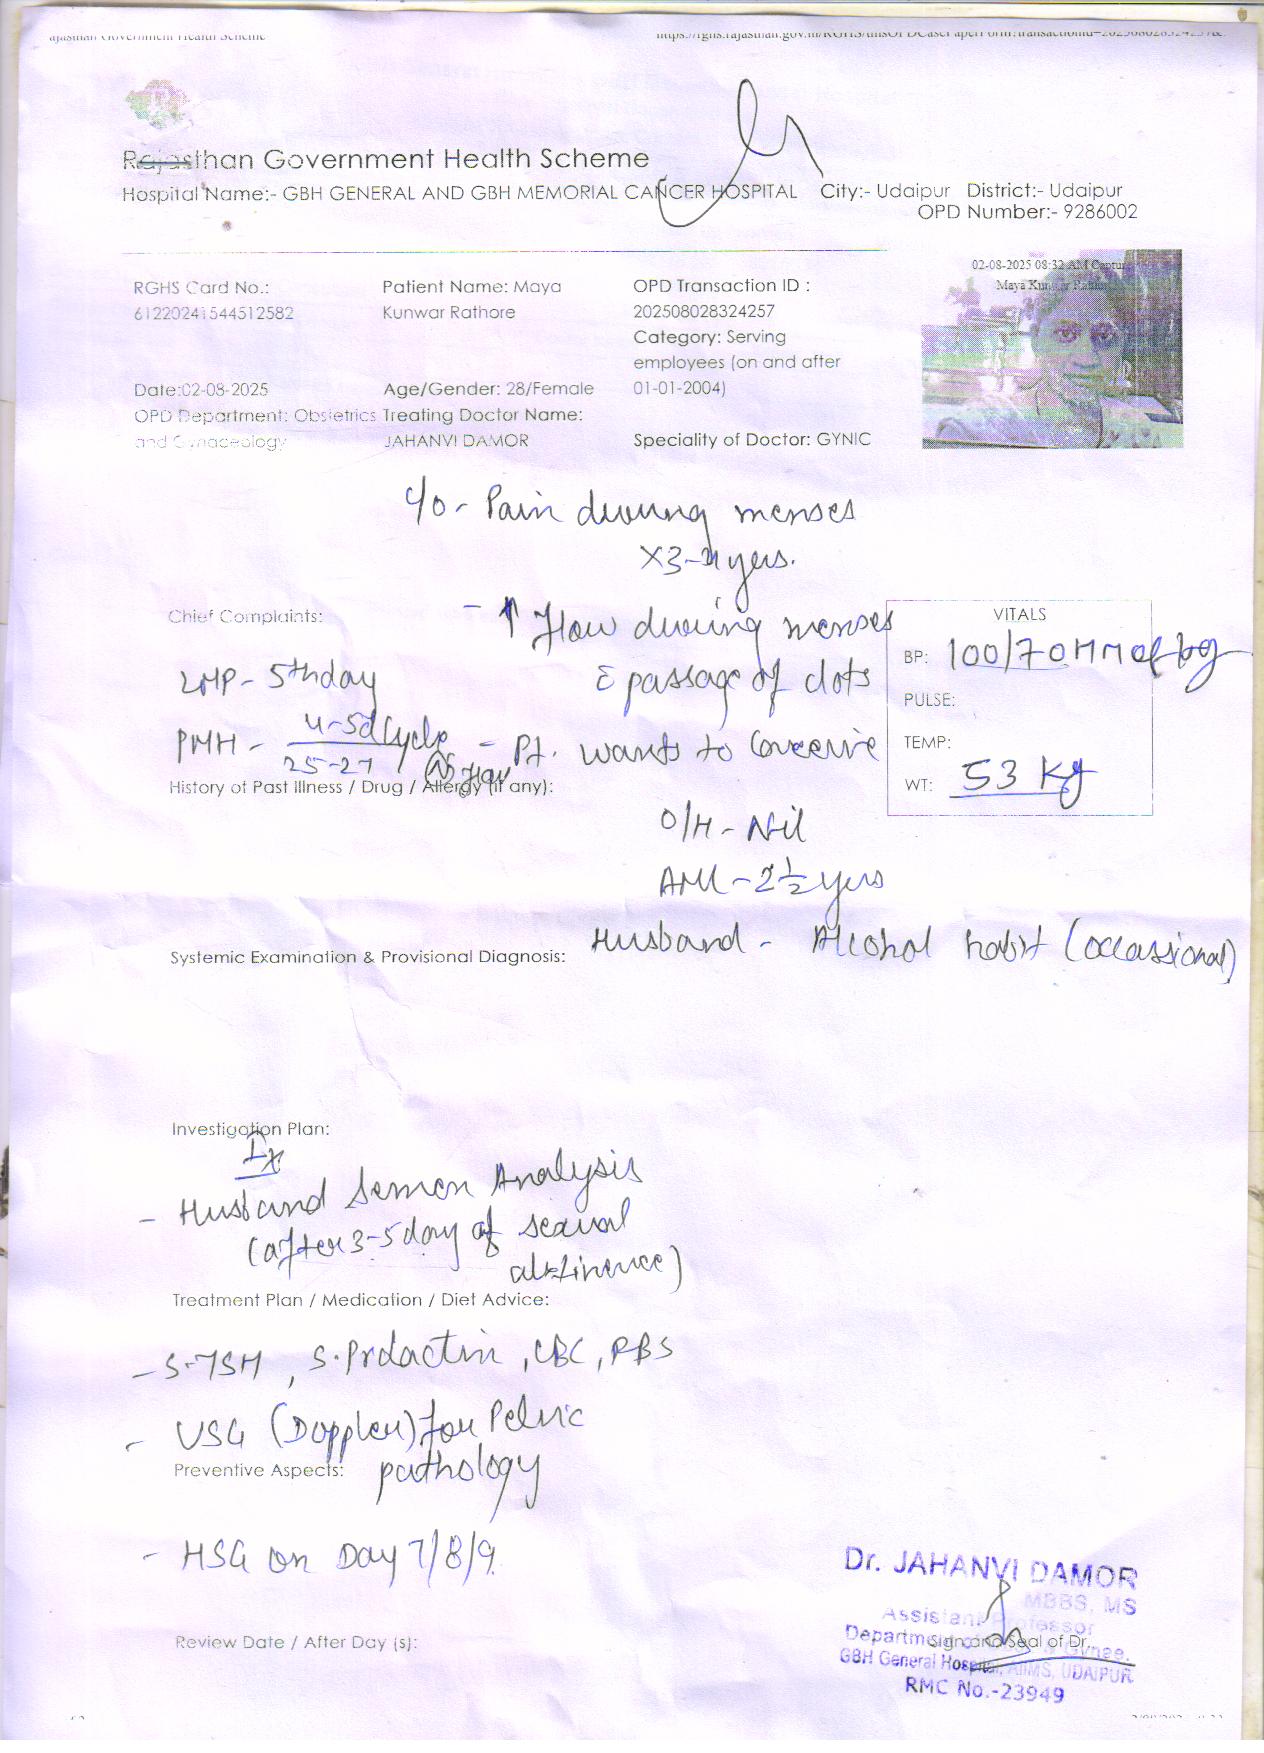 Rajasthan Government Health Scheme
Rajasthan Government Health Scheme
Hospital Name:- GBH GENERAL AND GBH MEMORIAL CANCER HOSPITAL City:- Udaipur District:- Udaipur
OPD Number:- 9286002
02-08-2025 08:32 AM
RGHS Card No.: Patient Name: Maya OPD Transaction ID :
61220241544512582 Kunwar Rathore 202508028324257
Category: Serving
employees (on and after
Date:02-08-2025 Age/Gender: 28/Female 01-01-2004)
OPD Department: Obstetrics Treating Doctor Name:
and Gynaecology JAHANVI DAMOR Speciality of Doctor: GYNIC
c/o - Pain during menses
X3-4 yers.
Chief Complaints: - ↑ flow during menses
VITALS
BP: 100/70 MM of hg
LMP - 5th day c̄ passage of clots
PULSE:
PMH - 4-5d cycle - Pt. wants to conceive
25-27
TEMP:
WT: 53 Kg
History of Past Illness / Drug / Allergy (if any):
O/H - Nil
AML - 2 1/2 yers
Systemic Examination & Provisional Diagnosis: Husband - Alcohol habit (occassional)
Investigation Plan:
Ix
- Husband Semen Analysis
(after 3-5 day of sexual
abstinence)
Treatment Plan / Medication / Diet Advice:
- S-TSH, S.Prolactin, CBC, RBS
- USG (Doppler) for Pelvic
Preventive Aspects: pathology
- HSG on Day 7/8/9.
Dr. JAHANVI DAMOR
MBBS, MS
Assistant Professor
Sign and Seal of Dr.
GBH General Hospital, AIIMS, UDAIPUR
RMC No.-23949
Review Date / After Day (s):